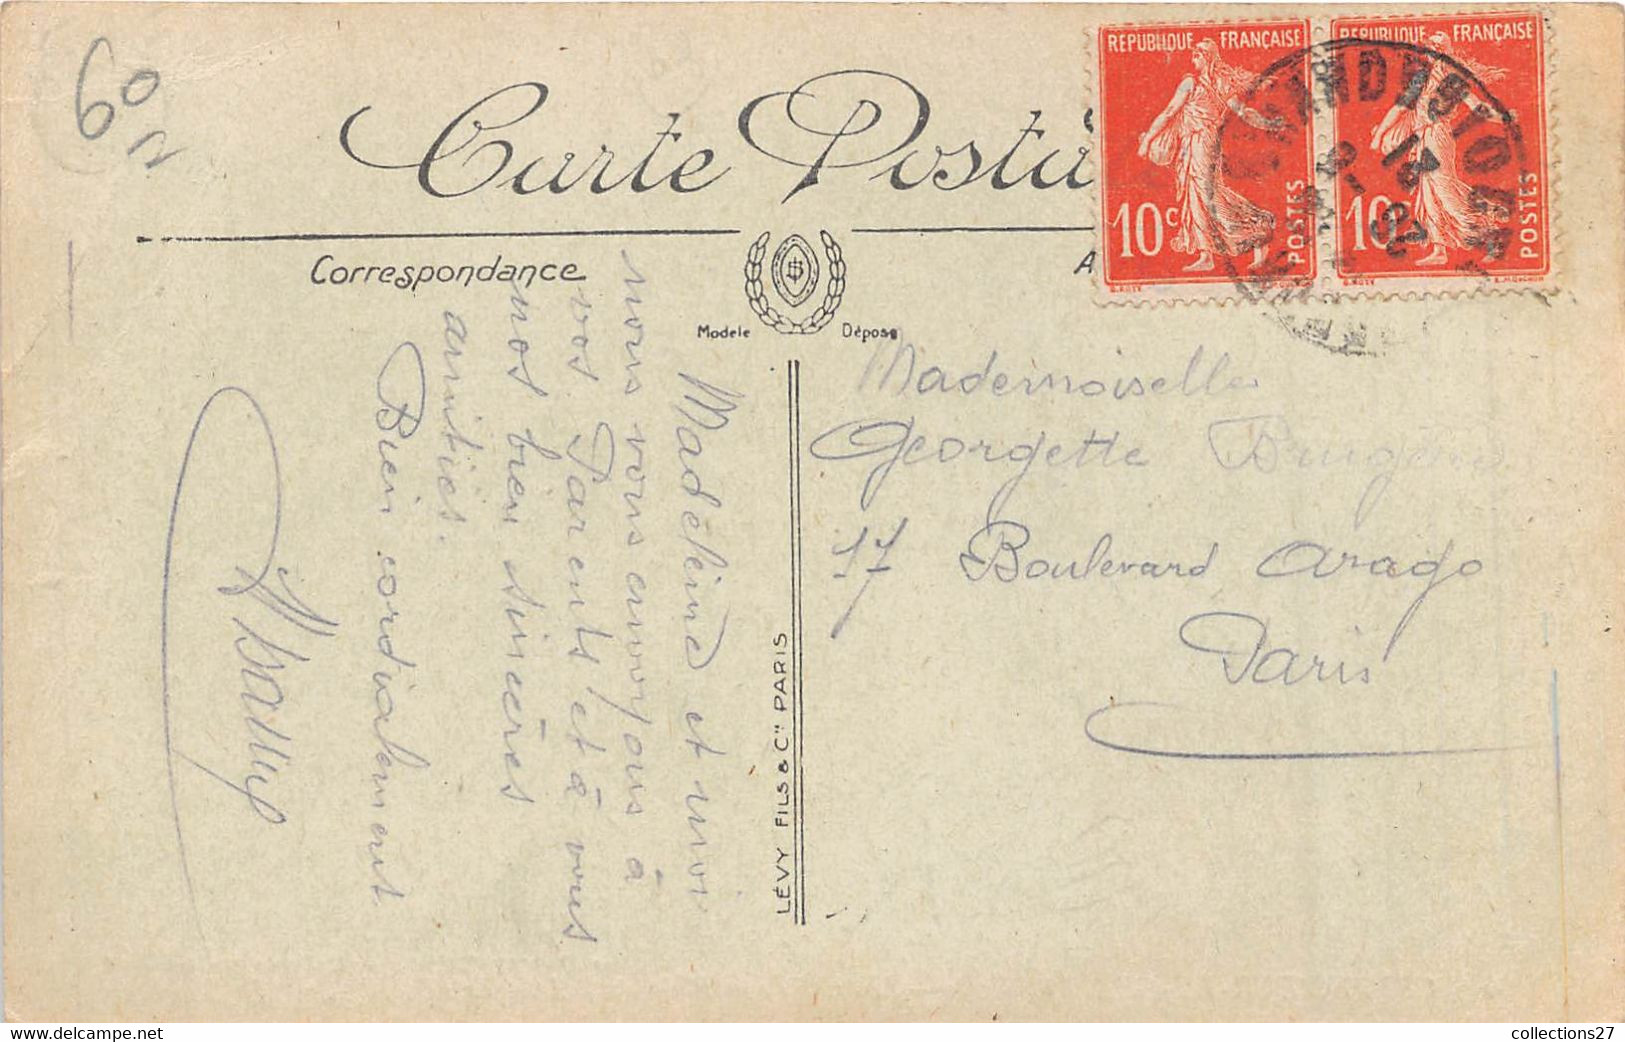 60
Carte Posta
Correspondance
Modèle Déposé
REPUBLIQUE FRANÇAISE
10c
POSTES
REPUBLIQUE FRANÇAISE
10c
POSTES
21
20
Madeleine et moi
nous vous envoyons à
vos Parents et à vous
nos bien sincères
amitiés.
Bien cordialement
LÉVY FILS & Cie PARIS
Mademoiselle
Georgette
17 Boulevard Arago
Paris
collections27